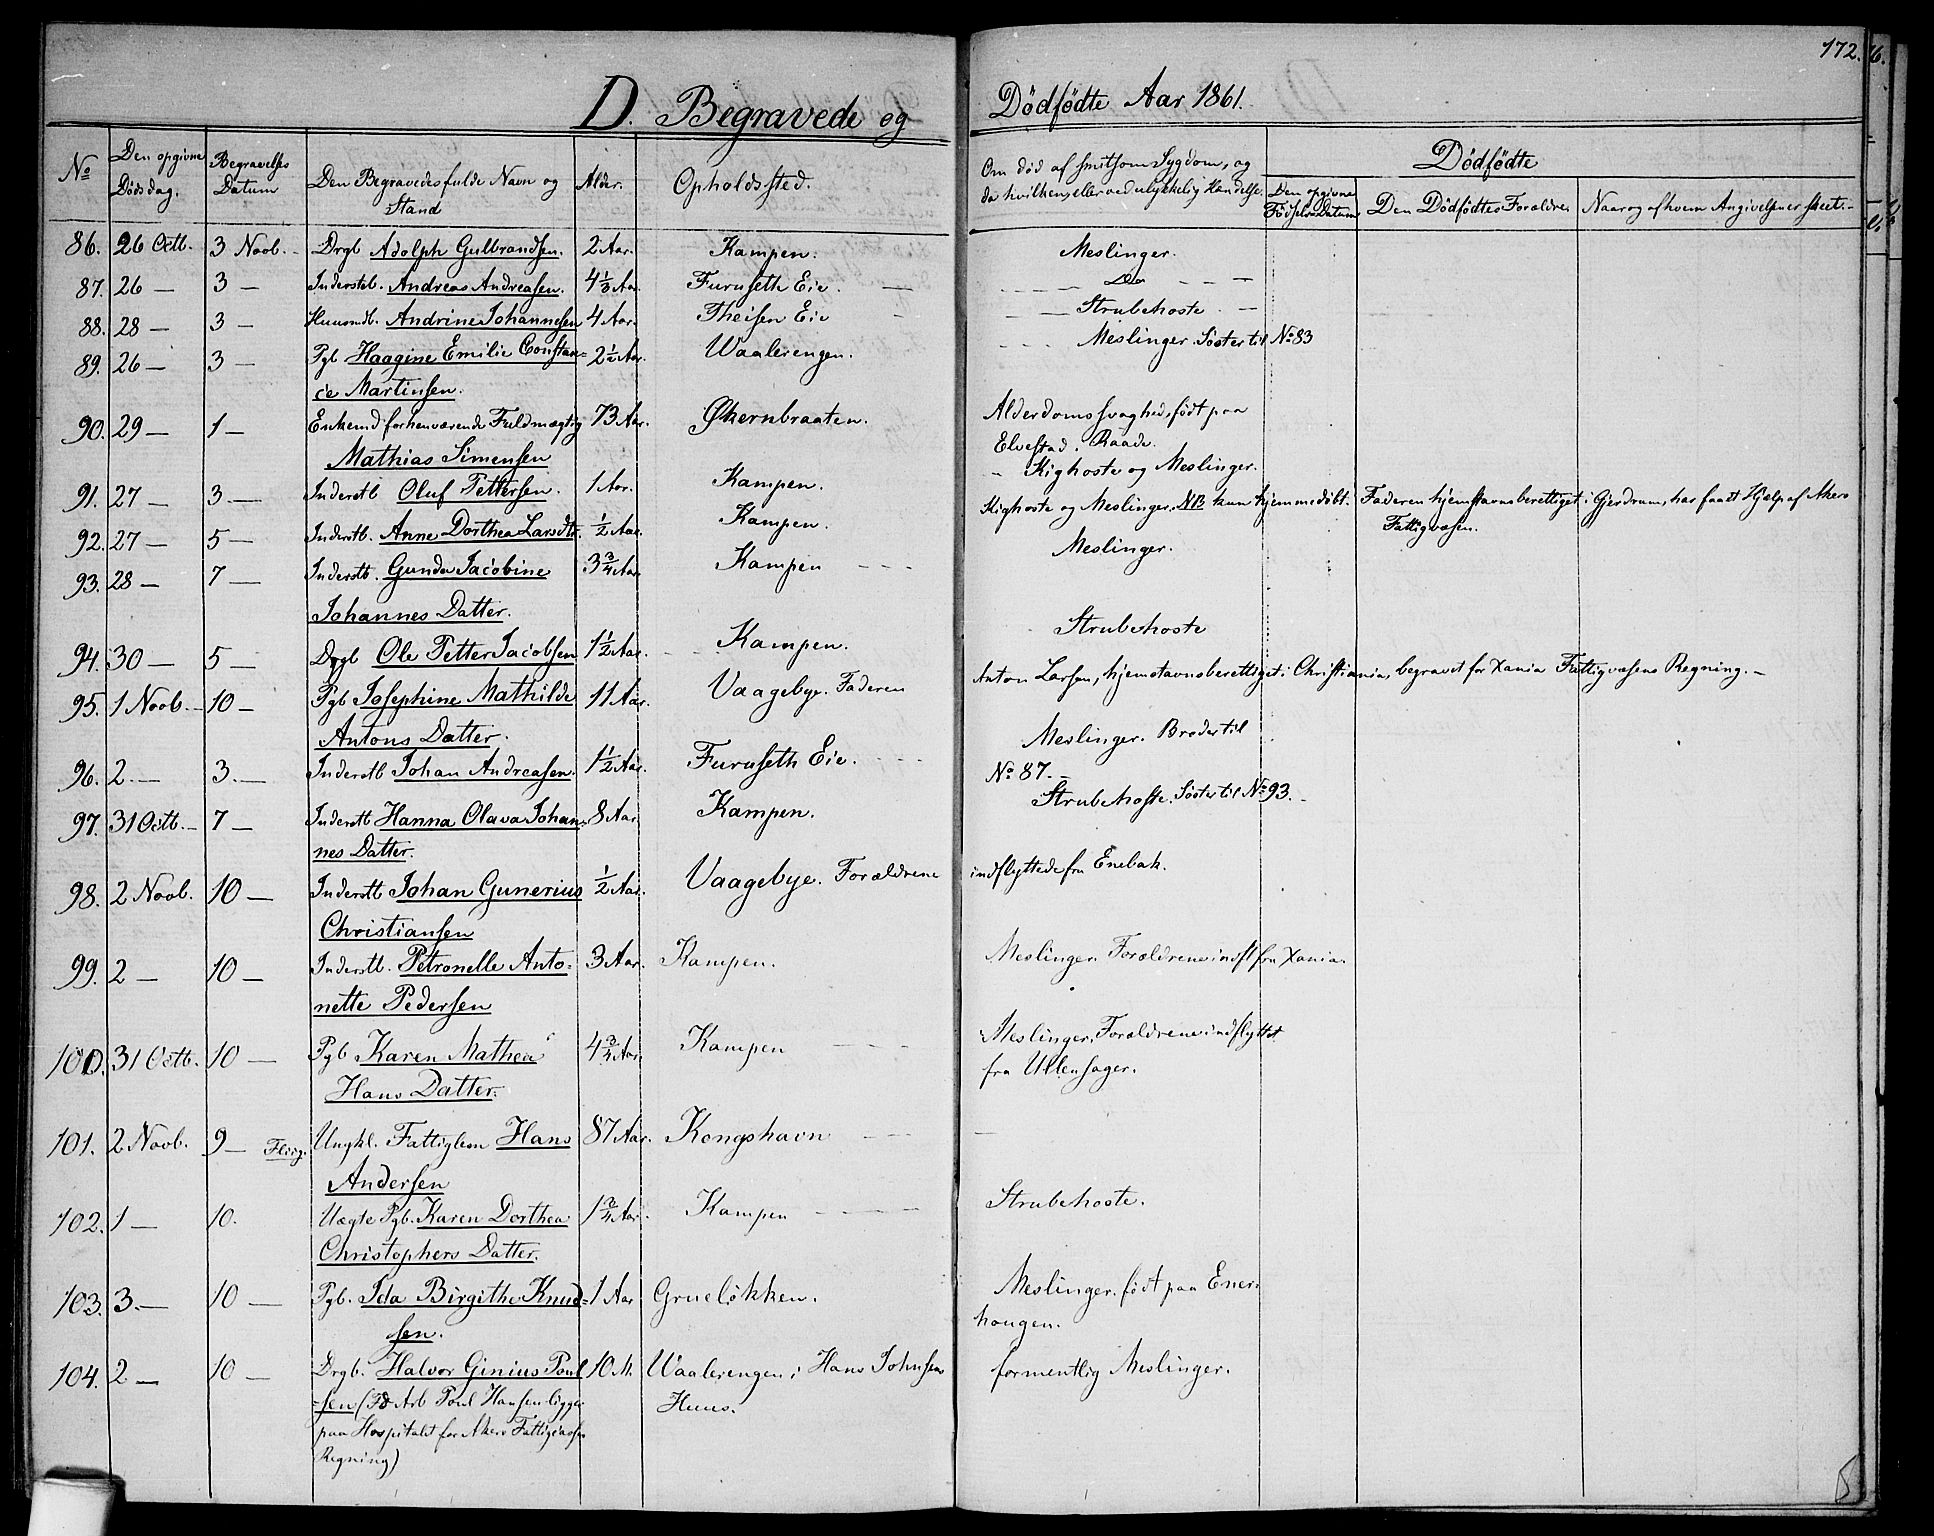 172.
D. Begravede og Dødfødte Aar 1861.
No
Den opgivne Dødsdag.
Begravelses Datum
Den Begravedes fulde Navn og Stand
Alder.
Opholdssted.
Om død af smitsom Sygdom, og da hvilken, eller ved ulykkelig Hændelse.
Dødfødte
Den opgivne Fødsels Datum
Den Dødfødtes Forældre
Naar og af hvem Angivelsen er skeet.
86. 26 Octb. 3 Novb. Drgb Adolph Gulbrandsen. 2 Aar. Kampen. Meslinger.
87. 26 — 3 — Inderstb. Andreas Andreasen. 4 1/3 Aar. Furuseth Eie. Do
88. 28 — 3 — Huusmdb. Andrine Johannesen 4 Aar. Theisen Eie Strubehoste
89. 26 — 3 — Pgb Haagine Emilie Constan= 2 1/2 Aar. Waalerengen. Meslinger. Søster til No 83
ce Martinsen.
90. 29 — 1 — Enkemd forhenværende Fuldmægtig 73 Aar. Økernbraaten. Alderdomssvaghed, født paa
Mathias Simensen Elvestad i Raade.
91. 27 — 3 — Inderstb Oluf Pettersen. 1 Aar. Kampen. Kighoste og Meslinger.
92. 27 — 5 — Inderstb. Anne Dorthea Larsdtr. 1/2 Aar. Kampen. Kighoste og Meslinger. NB kun hjemmedøbt. Faderen hjemstavnsberettiget i Gjerdrum, har faaet Hjelp af Akers
Fattigvæsen.
93. 28 — 7 — Inderstb. Gunda Jacobine 3 3/4 Aar Kampen Meslinger.
Johannes Datter.
94. 30 — 5 — Drgb Ole Petter Jacobsen 1 1/2 Aar. Kampen. Strubehoste
95. 1 Novb. 10 — Pgb Josephine Mathilde 11 Aar. Vaagebye. Faderen Anton Larsen, hjemstavnsberettiget i Christiania, begravet for Xania Fattigvæsens Regning.
Antons Datter.
96. 2. — 3. — Inderstb Johan Andreasen. 1 1/2 Aar. Furuseth Eie. Meslinger. Broder til
No 87.
97. 31 Octb. 7 — Inderstb Hanna Olava Johan= 8 Aar. Kampen. Strubehoste. Søster til No 93.
nes Datter.
98. 2 Novb. 10 — Inderstb Johan Gunerius 1/2 Aar. Vaagebye. Forældrene indflyttede fra Enebak.
Christiansen
99. 2 — 10 — Inderstb. Petronelle Anto= 3 Aar. Kampen. Meslinger. Forældrene indfl fra Xania.
nette Pedersen
100. 31 Octb. 10 — Pgb Karen Mathea 4 3/4 Aar. Kampen Meslinger. Forældrene indflyttet
Hans Datter. fra Ullensager.
101. 2 Novb. 9 — Ungkl. Fattiglem Hans 87 Aar. Kongshavn
Andersen
102. 1 — 10. Uægte Pgb. Karen Dorthea 1 3/4 Aar. Kampen Strubehoste.
Christophers Datter.
103. 3. — 10 — Pgb. Ida Birgithe Knud= 1 Aar Grueløkken. Meslinger. født paa Ener=
sen. hougen.
104. 2 — 10 — Drgb. Halvor Ginius Poul 10 M. Waalerengen i Hans Johnsens formentlig Meslinger.
=sen (Fd Arb Poul Hansen ligger Huus.
paa Hospitalet for Akers Fattigvæsen
Regning)